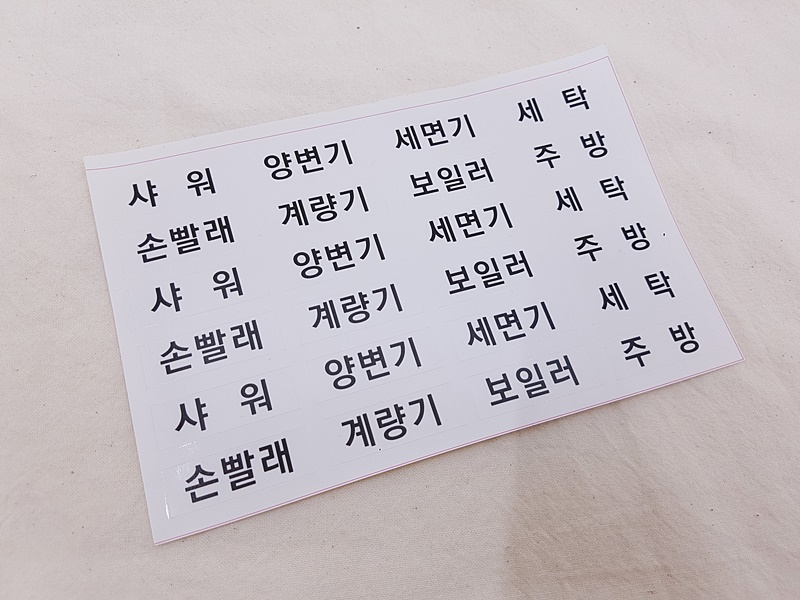 샤 워 양변기 세면기 세 탁
손빨래 계량기 보일러 주 방
샤 워 양변기 세면기 세 탁
손빨래 계량기 보일러 주 방
샤 워 양변기 세면기 세 탁
손빨래 계량기 보일러 주 방